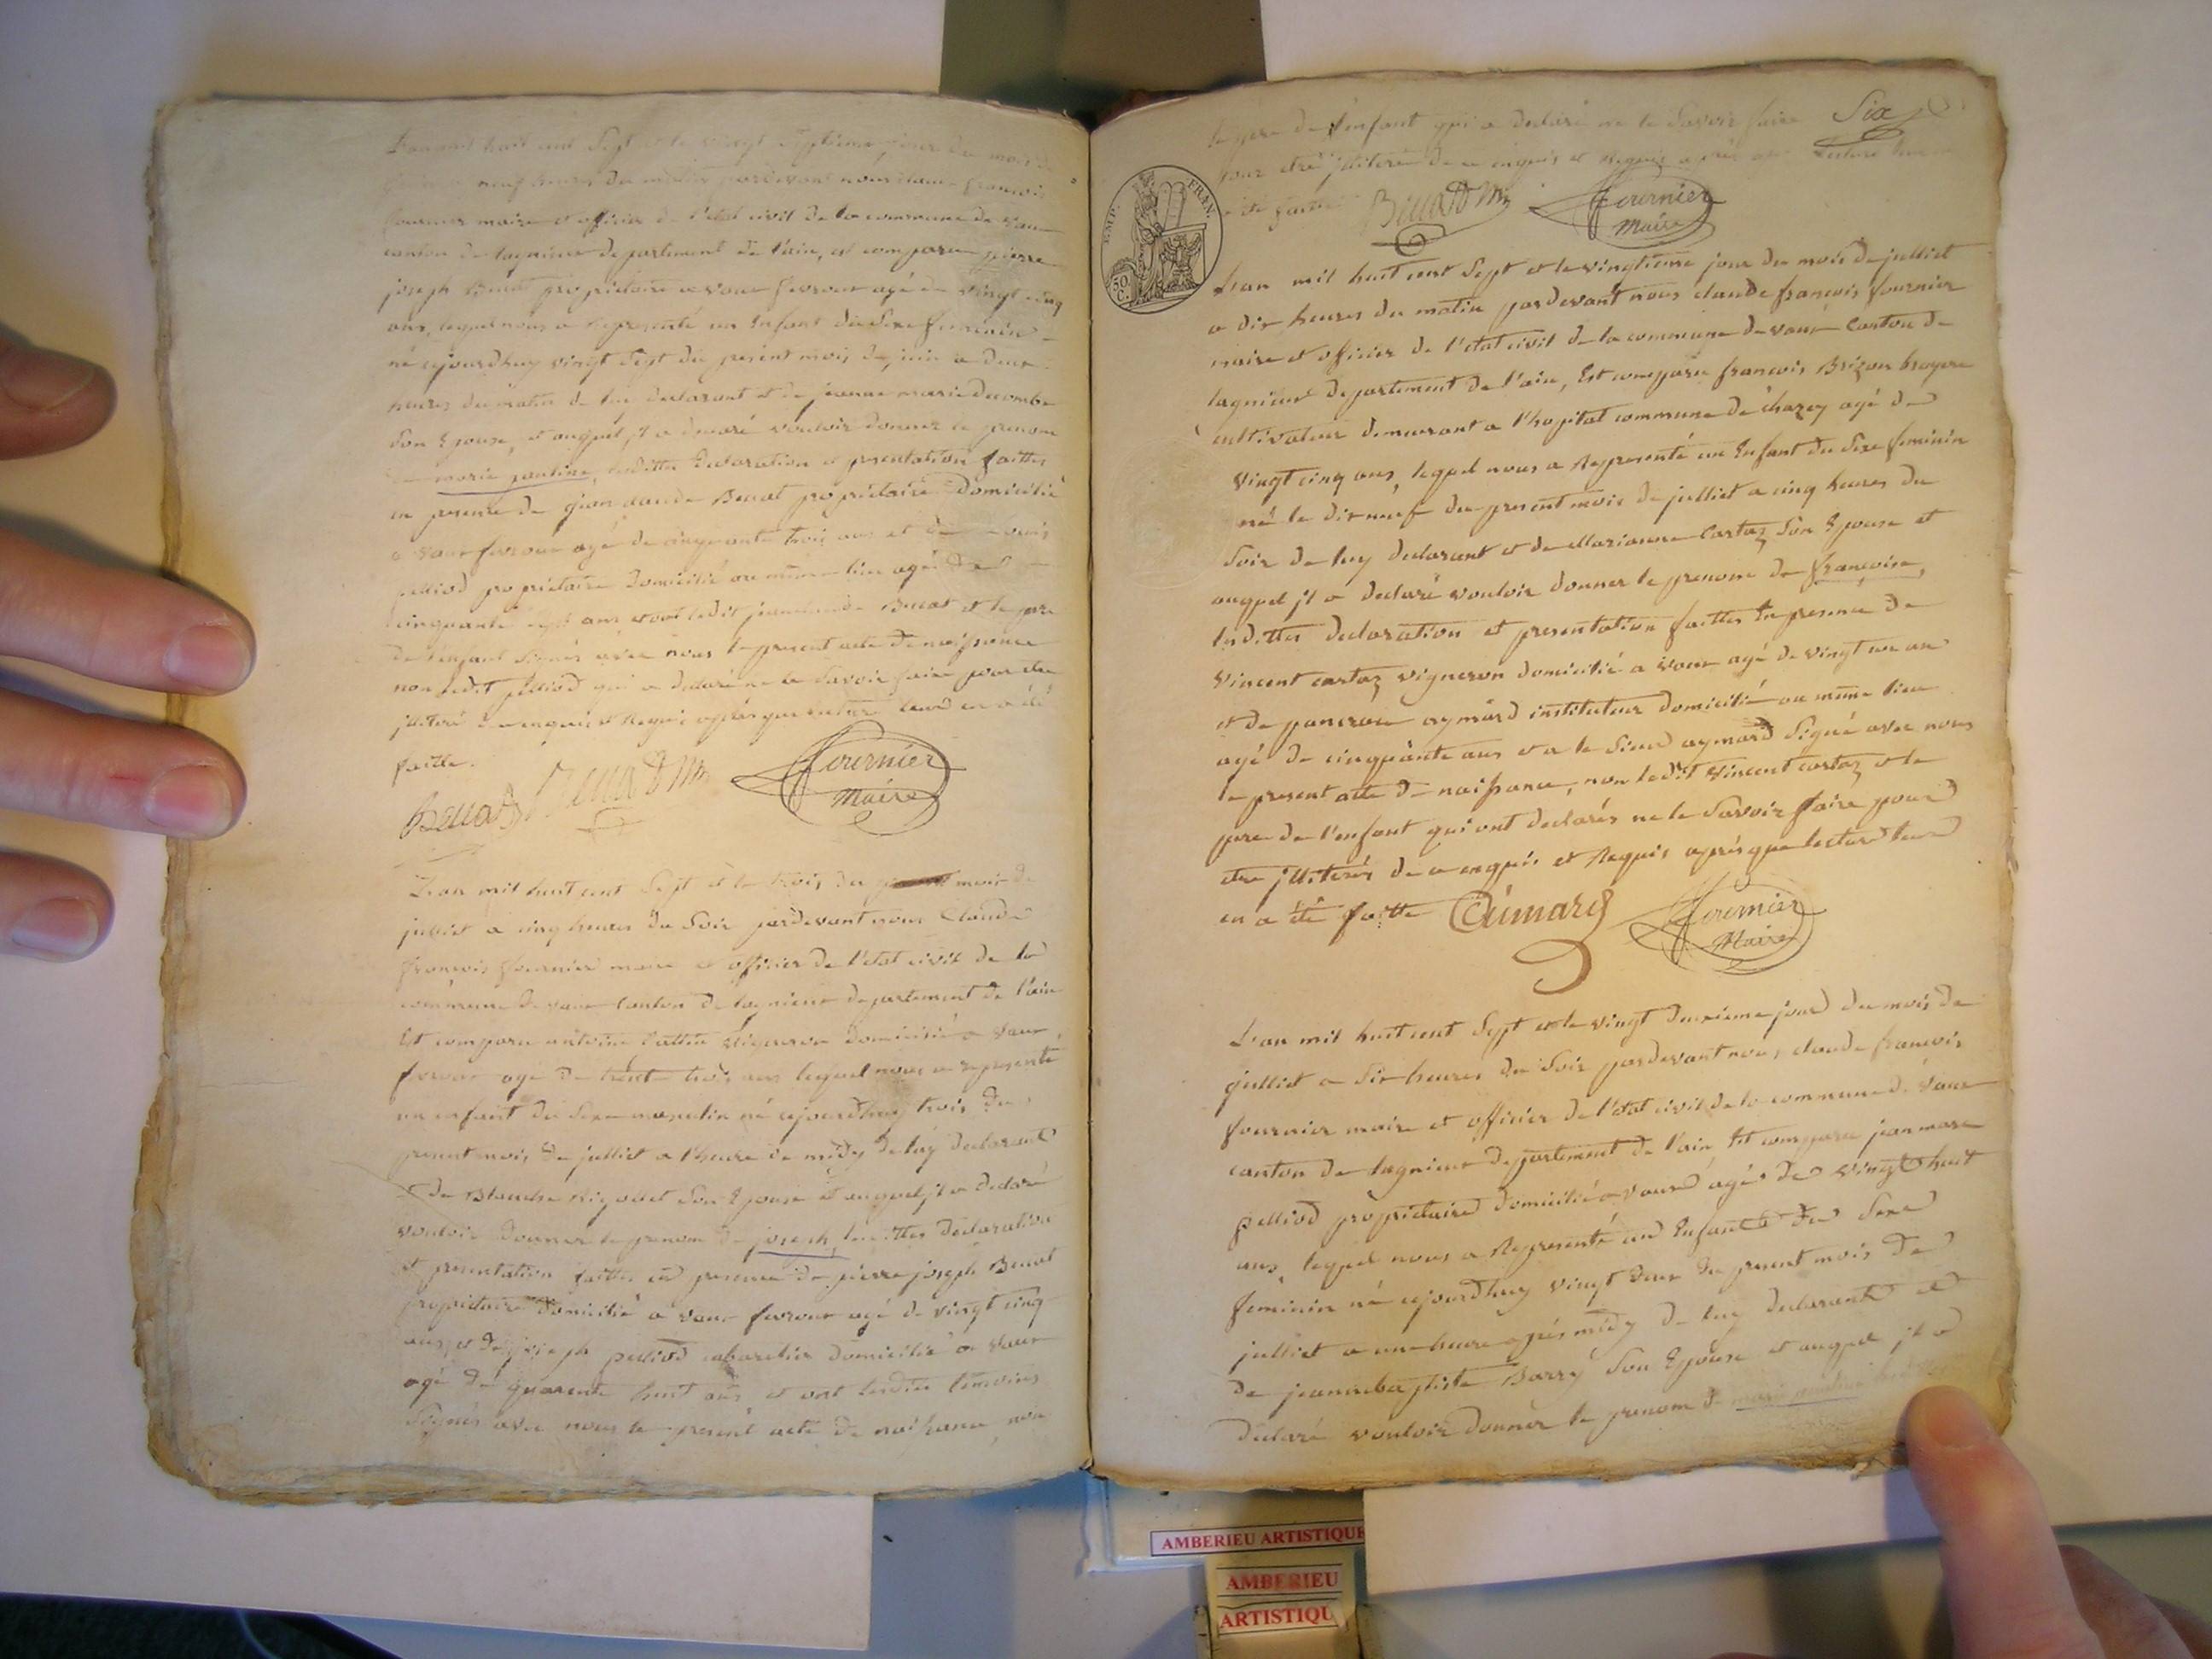 L'an mil huit cent Sept et le vingt Septieme jour du mois de
juin a neuf heures du matin pardevant nous claude francois
fournier maire et officier de l'etat civil de la commune de vaux
canton de lagnieux departement de l'ain, est comparu pierre
joseph Beuat propriétaire a vaux fevrour agé de vingt cinq
ans, lequel nous a Representé un Enfant du Sexe feminin
né cejourdhuy vingt Sept du present mois de juin a deux
heures du matin de luy declarant et de jeanne marie decombe
Son Epouse, et auquel jl a declaré vouloir donner le prenom
de marie pauline, lesdittes declaration et presentation faittes
en presence de jean claude Beuat propriétaire Domicilié
a vaux fevrour agé de cinquante trois ans et de
pelliod propriétaire Domicilié au même lieu agé de
cinquante Sept ans et ont ledit jeanclaude Beuat et le pere
de l'enfant Signés avec nous le present acte de naissance
non ledit pelliod qui a declaré ne le Savoir faire pour etre
jlliteré de ce enquis et Requis après que lecture leur en a été
faitte.
Beuat Beuat Fournier
Maire
L'an mil huit cent Sept et le trois du mois de
julliet a cinq heures du Soir pardevant nous Claude
francois fournier maire et officier de l'etat civil de la
commune de vaux Canton de lagnieux departement de l'ain
Est comparu antoine vigneron domicilié a vaux
fevrour agé de trente trois ans lequel nous a representé
un enfant du Sexe masculin né cejourdhuy trois du
present mois de julliet a l'heure de midy de luy declarant
et de Blanche Rigollet Son Epouse et auquel jl a declaré
vouloir donner le prenom de joseph, lesdittes declaration
et presentation faittes en presence de pierre joseph Beuat
propriétaire domicilié a vaux fevrour agé de vingt cinq
ans, et de joseph pelliod cabaretier domicilié a vaux
agé de quarente huit ans, et ont lesdits temoins
Signés avec nous le present acte de naissance, non
Six
le pere de l'enfant qui a declaré ne le Savoir faire
pour etre jlliteré de ce enquis et Requis après que Lecture leur en
a été faitte Beuat Fournier
Maire
EMP. FRAN.
50 C.
L'an mil huit cent Sept et le vingtieme jour du mois de julliet
a dix heures du matin pardevant nous claude francois fournier
maire et officier de l'etat civil de la commune de vaux Canton de
lagnieux departement de l'ain, Est comparu francois Brizon broyere
cultivateur demeurant a l'hopital commune de chazey agé de
vingt cinq ans, lequel nous a Representé un Enfant du Sexe feminin
né le dix neuf du present mois de julliet a cinq heures du
Soir de luy declarant et de Marianne Cartaz Son Epouse et
auquel jl a declaré vouloir donner le prenom de francoise,
lesdittes declaration et presentation faittes En presence de
vincent cartaz vigneron domicilié a vaux agé de vingt un an
et de pancrace aymard instituteur domicilié au même lieu
agé de cinquante ans et a le Sieur aymard Signé avec nous
le present acte de naissance, non ledit vincent cartaz et le
pere de l'enfant qui ont declarés ne le Savoir faire pour
etre jlliterés de ce enquis et Requis après que lecture leur
en a été faitte Aimard Fournier
Maire
L'an mil huit cent Sept et le vingt deuxieme jour du mois de
julliet a Six heures du Soir pardevant nous claude francois
fournier maire et officier de l'etat civil de la commune de vaux
canton de lagnieux departement de l'ain Est comparu jean marc
pelliod propriétaire domicilié a vaux agé de vingt huit
ans, lequel nous a Representé un Enfant du Sexe
feminin né cejourdhuy vingt deux du present mois de
julliet a une heure après midy de luy declarant et
de jeannebaptiste Barry Son Epouse et auquel jl a
declaré vouloir donner le prenom de marie
AMBERIEU ARTISTIQUE
AMBERIEU
ARTISTIQU